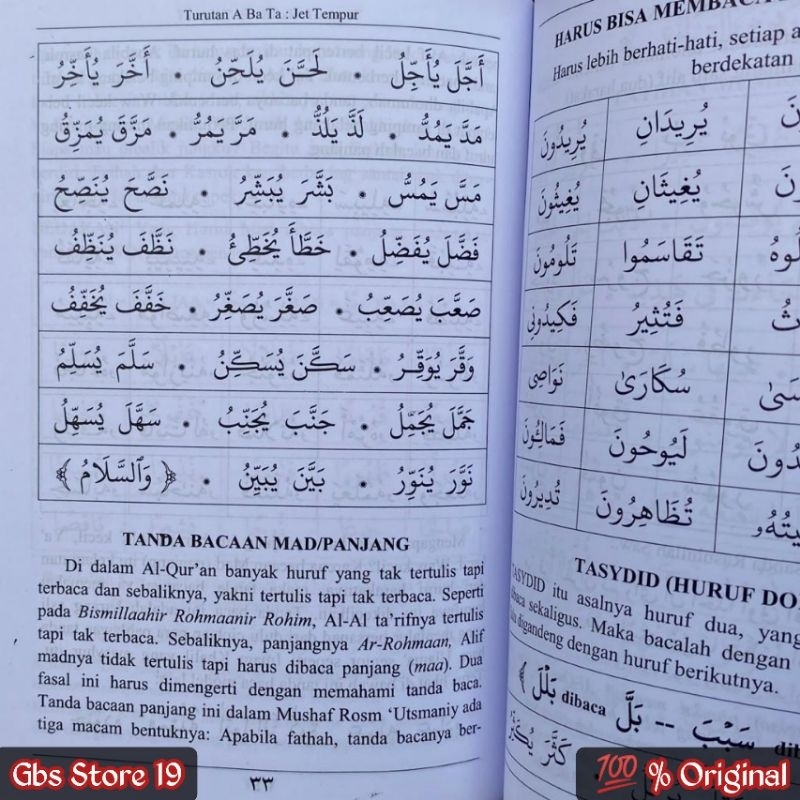 Turutan A Ba Ta : Jet Tempur
أَجَّلَ يُأَجِّلُ . لَحَّنَ يُلَحِّنُ . أَخَّرَ يُأَخِّرُ
مَدَّ يَمُدُّ . لَذَّ يَلُذُّ . مَرَّ يَمُرُّ . مَزَّقَ يُمَزِّقُ
مَسَّ يَمُسُّ . بَشَّرَ يُبَشِّرُ . نَصَّحَ يُنَصِّحُ
فَضَّلَ يُفَضِّلُ . خَطَّأَ يُخَطِّئُ . نَظَّفَ يُنَظِّفُ
صَعَّبَ يُصَعِّبُ . صَغَّرَ يُصَغِّرُ . خَفَّفَ يُخَفِّفُ
وَقَّرَ يُوَقِّرُ . سَكَّنَ يُسَكِّنُ . سَلَّمَ يُسَلِّمُ
جَمَّلَ يُجَمِّلُ . جَنَّبَ يُجَنِّبُ . سَهَّلَ يُسَهِّلُ
نَوَّرَ يُنَوِّرُ . بَيَّنَ يُبَيِّنُ . ﴿ وَالسَّلَامُ ﴾
TANDA BACAAN MAD/PANJANG
Di dalam Al-Qur'an banyak huruf yang tak tertulis tapi
terbaca dan sebaliknya, yakni tertulis tapi tak terbaca. Seperti
pada Bismillaahir Rohmaanir Rohim, Al-Al ta'rifnya tertulis
tapi tak terbaca. Sebaliknya, panjangnya Ar-Rohmaan, Alif
madnya tidak tertulis tapi harus dibaca panjang (maa). Dua
fasal ini harus dimengerti dengan memahami tanda baca.
Tanda bacaan panjang ini dalam Mushaf Rosm 'Utsmaniy ada
tiga macam bentuknya: Apabila fathah, tanda bacanya ber-
٣٣
HARUS BISA MEMBACA
Harus lebih berhati-hati, setiap a
berdekatan
يُرِيدَانِ يُرِيدُونَ
يُغِيثَانِ يُغِيثُونَ
تَقَاسَمُوا تَلُومُونَ
فَتُثِيرُ فَكِيدُونِي
سُكَارَىٰ نَوَاصِي
لَيُوحُونَ فَمَالِئُونَ
تُظَاهِرُونَ تُدِيرُونَ
TASYDID (HURUF DO
TASYDID itu asalnya huruf dua, yang
dibaca sekaligus. Maka bacalah dengan
digandeng dengan huruf berikutnya.
بَلْلَ dibaca بَلَّ -- سَبْبَ
كَثَّرَ
Gbs Store 19
💯 % Original